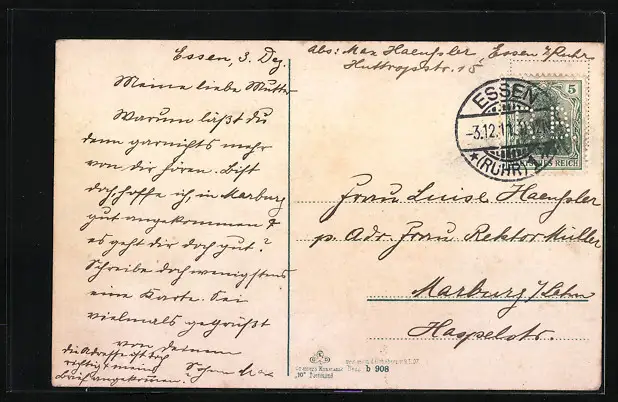 Essen, 3. Dez.
Meine liebe Mutter
Warum läßt du
denn garnichts mehr
von dir hören. Bist
doch, hoffe ich, in Marburg
gut angekommen &
es geht dir doch gut?
Schreibe doch wenigstens
eine Karte. Sei
vielmals gegrüßt
von deinem
Sohn Max
die Adresse ist doch
richtig & mein
Brief angekommen?
abs: Max Haenssler, Essen a/Ruhr
Huttropstr. 15
ESSEN
-3.12.11
*(RUHR) 1
5
REICH
Frau Luise Haenssler
p. Adr. Frau Rektor Müller
Marburg /Lahn
Haspelstr.
"10" Dortmund
b 908